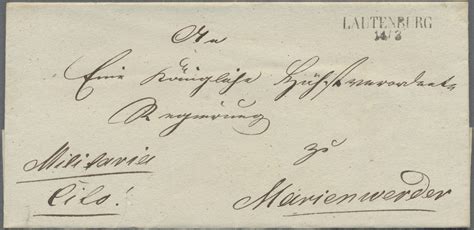 LAUTENBURG
14/3
An
Eine Königliche Höchstverordnete
Regierung
zu
Militaria
Cito!
Marienwerder